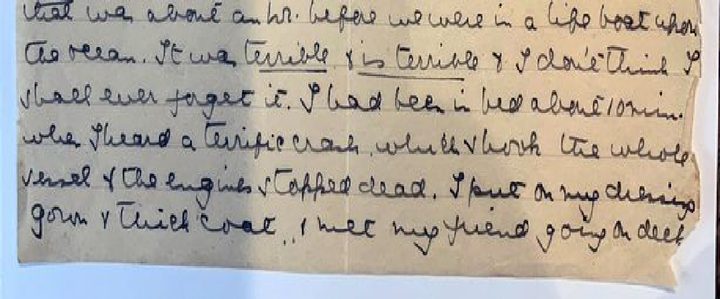 that was about an hr. before we were in a life boat upon
the ocean. It was terrible & is terrible & I don't think I
shall ever forget it. I had been in bed about 10 min.
when I heard a terrific crash, which shook the whole
vessel & the engines stopped dead. I put on my dressing
gown & thick coat, I met my friend going on deck